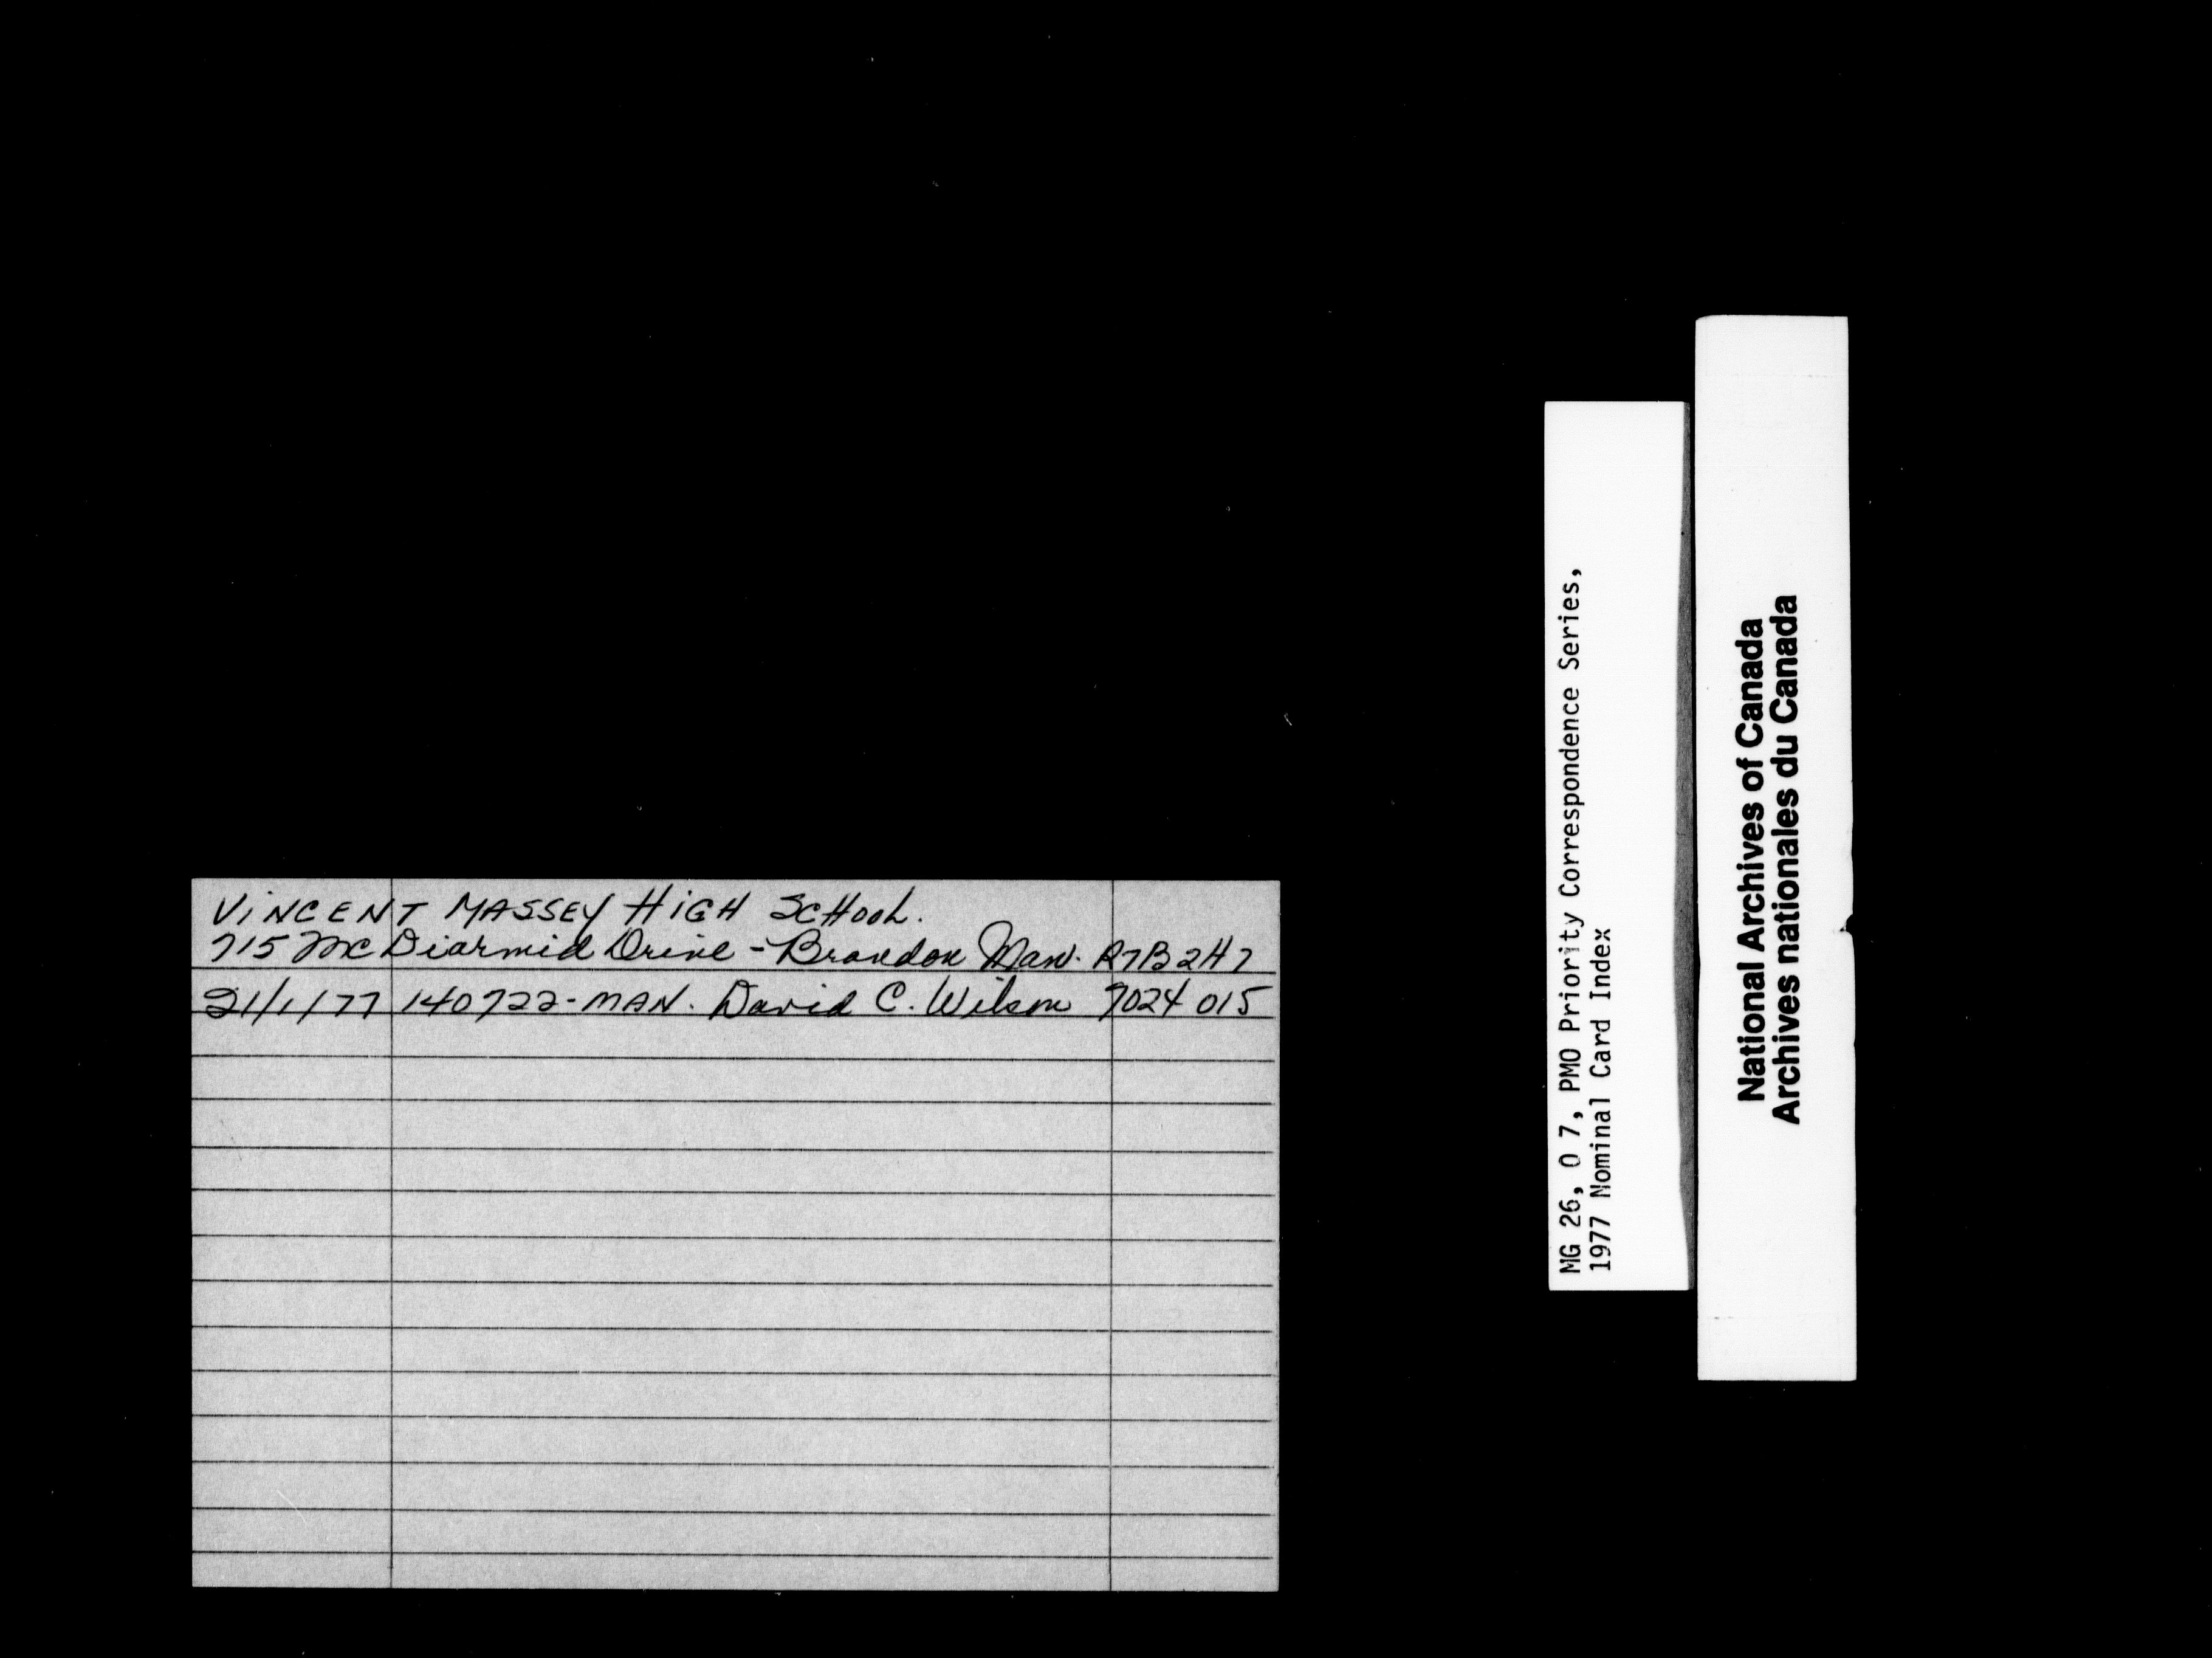 VINCENT MASSEY HIGH SCHOOL.
715 McDiarmid Drive - Brandon Man. R7B2H7
21/1/77 140722-MAN. David C. Wilson 7024 015
MG 26, O 7, PMO Priority Correspondence Series,
1977 Nominal Card Index
National Archives of Canada
Archives nationales du Canada